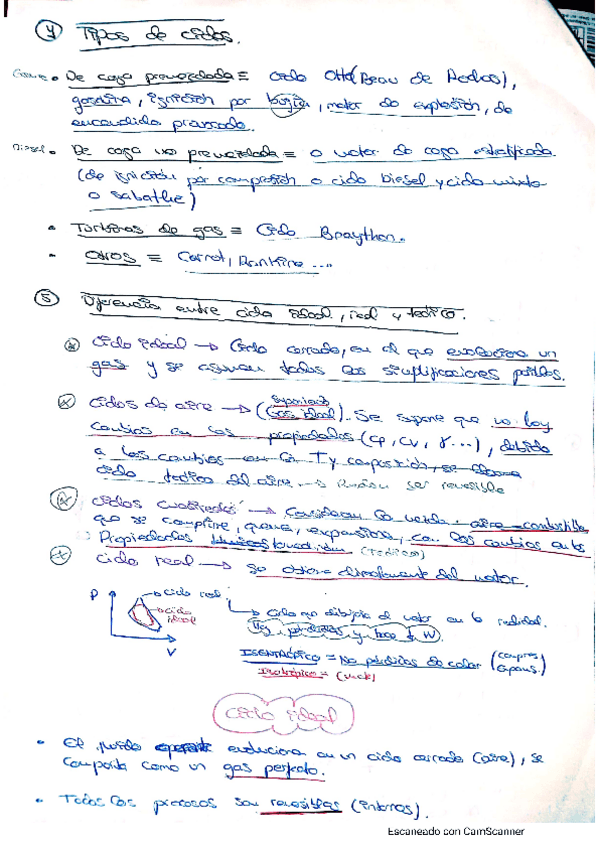 4 Tipos de ciclos.
De carga premezclada ≡ ciclo Otto (Beau de Rochas),
gasolina, ignición por bujía, motor de explosión, de
encendido provocado.
Diesel • De carga no premezclada ≡ o motor de carga estratificada
(de ignición por compresión o ciclo Diesel y ciclo mixto
o Sabathe)
• Turbinas de gas ≡ Ciclo Braython.
• Otros ≡ Carnot, Rankine ...
5 Diferencia entre ciclo ideal, real y teórico.
Ciclo ideal → Ciclo cerrado, en el que evoluciona un
gas y se asumen todas las simplificaciones posibles.
Ciclos de aire → (gas ideal). Se supone que no hay
cambios en las propiedades (cp, cv, γ ...), debido
a los cambios en la T y composición, se
ciclo teórico del aire. → Pueden ser reversible
Ciclos → Consideran la mezcla aire-combustible
que se comprime, quema, expansiona, con los cambios en las
Propiedades (teóricos)
Ciclo real → Se obtiene directamente del motor.
P
Ciclo real
Ciclo ideal
V
Ciclo que dibuja el motor en la realidad.
Hay pérdidas y W
ISENTRÓPICO = No pérdidas de calor (compres. expans.)
Ciclo ideal
• El fluido evoluciona en un ciclo cerrado (aire), se
comporta como un gas perfecto.
• Todos los procesos son reversibles (internos).
Escaneado con CamScanner